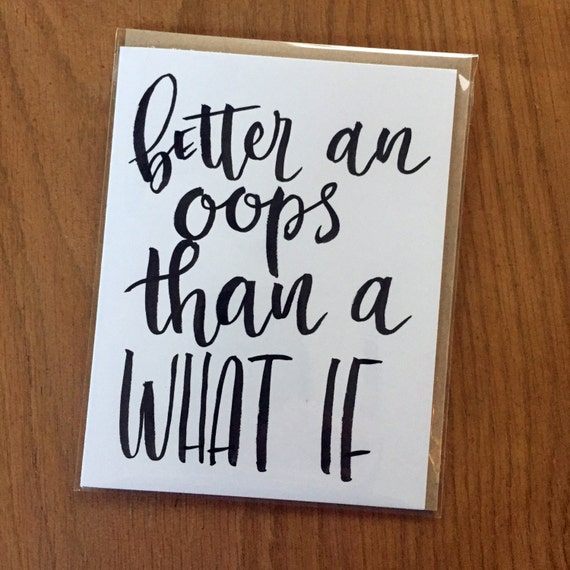 better an
oops
than a
WHAT IF